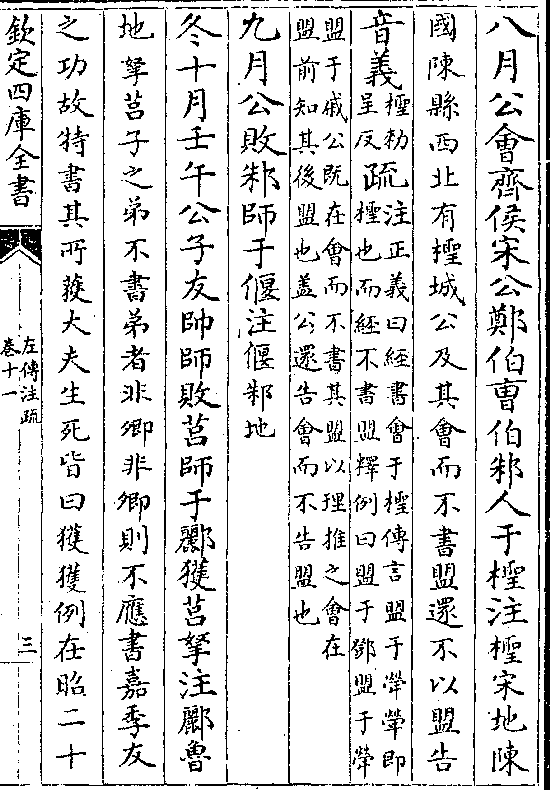 八月公會齊侯宋公鄭伯曹伯邾人于檉注檉宋地陳
國陳縣西北有檉城公及其會而不書盟還不以盟告
音義檉勑呈反疏注正義曰經書會于檉傳言盟于犖犖即
檉也而經不書盟釋例曰盟于鄧盟于犖
盟于戚公既在會而不書其盟以理推之會在
盟前知其後盟也盖公還告會而不告盟也
九月公敗邾師于偃注偃邾地
冬十月壬午公子友帥師敗莒師于酈獲莒挐注酈魯
地挐莒子之弟不書弟者非卿非卿則不應書嘉季友
之功故特書其所獲大夫生死皆曰獲獲例在昭二十
欽定四庫全書
左傳注疏
卷十一
三